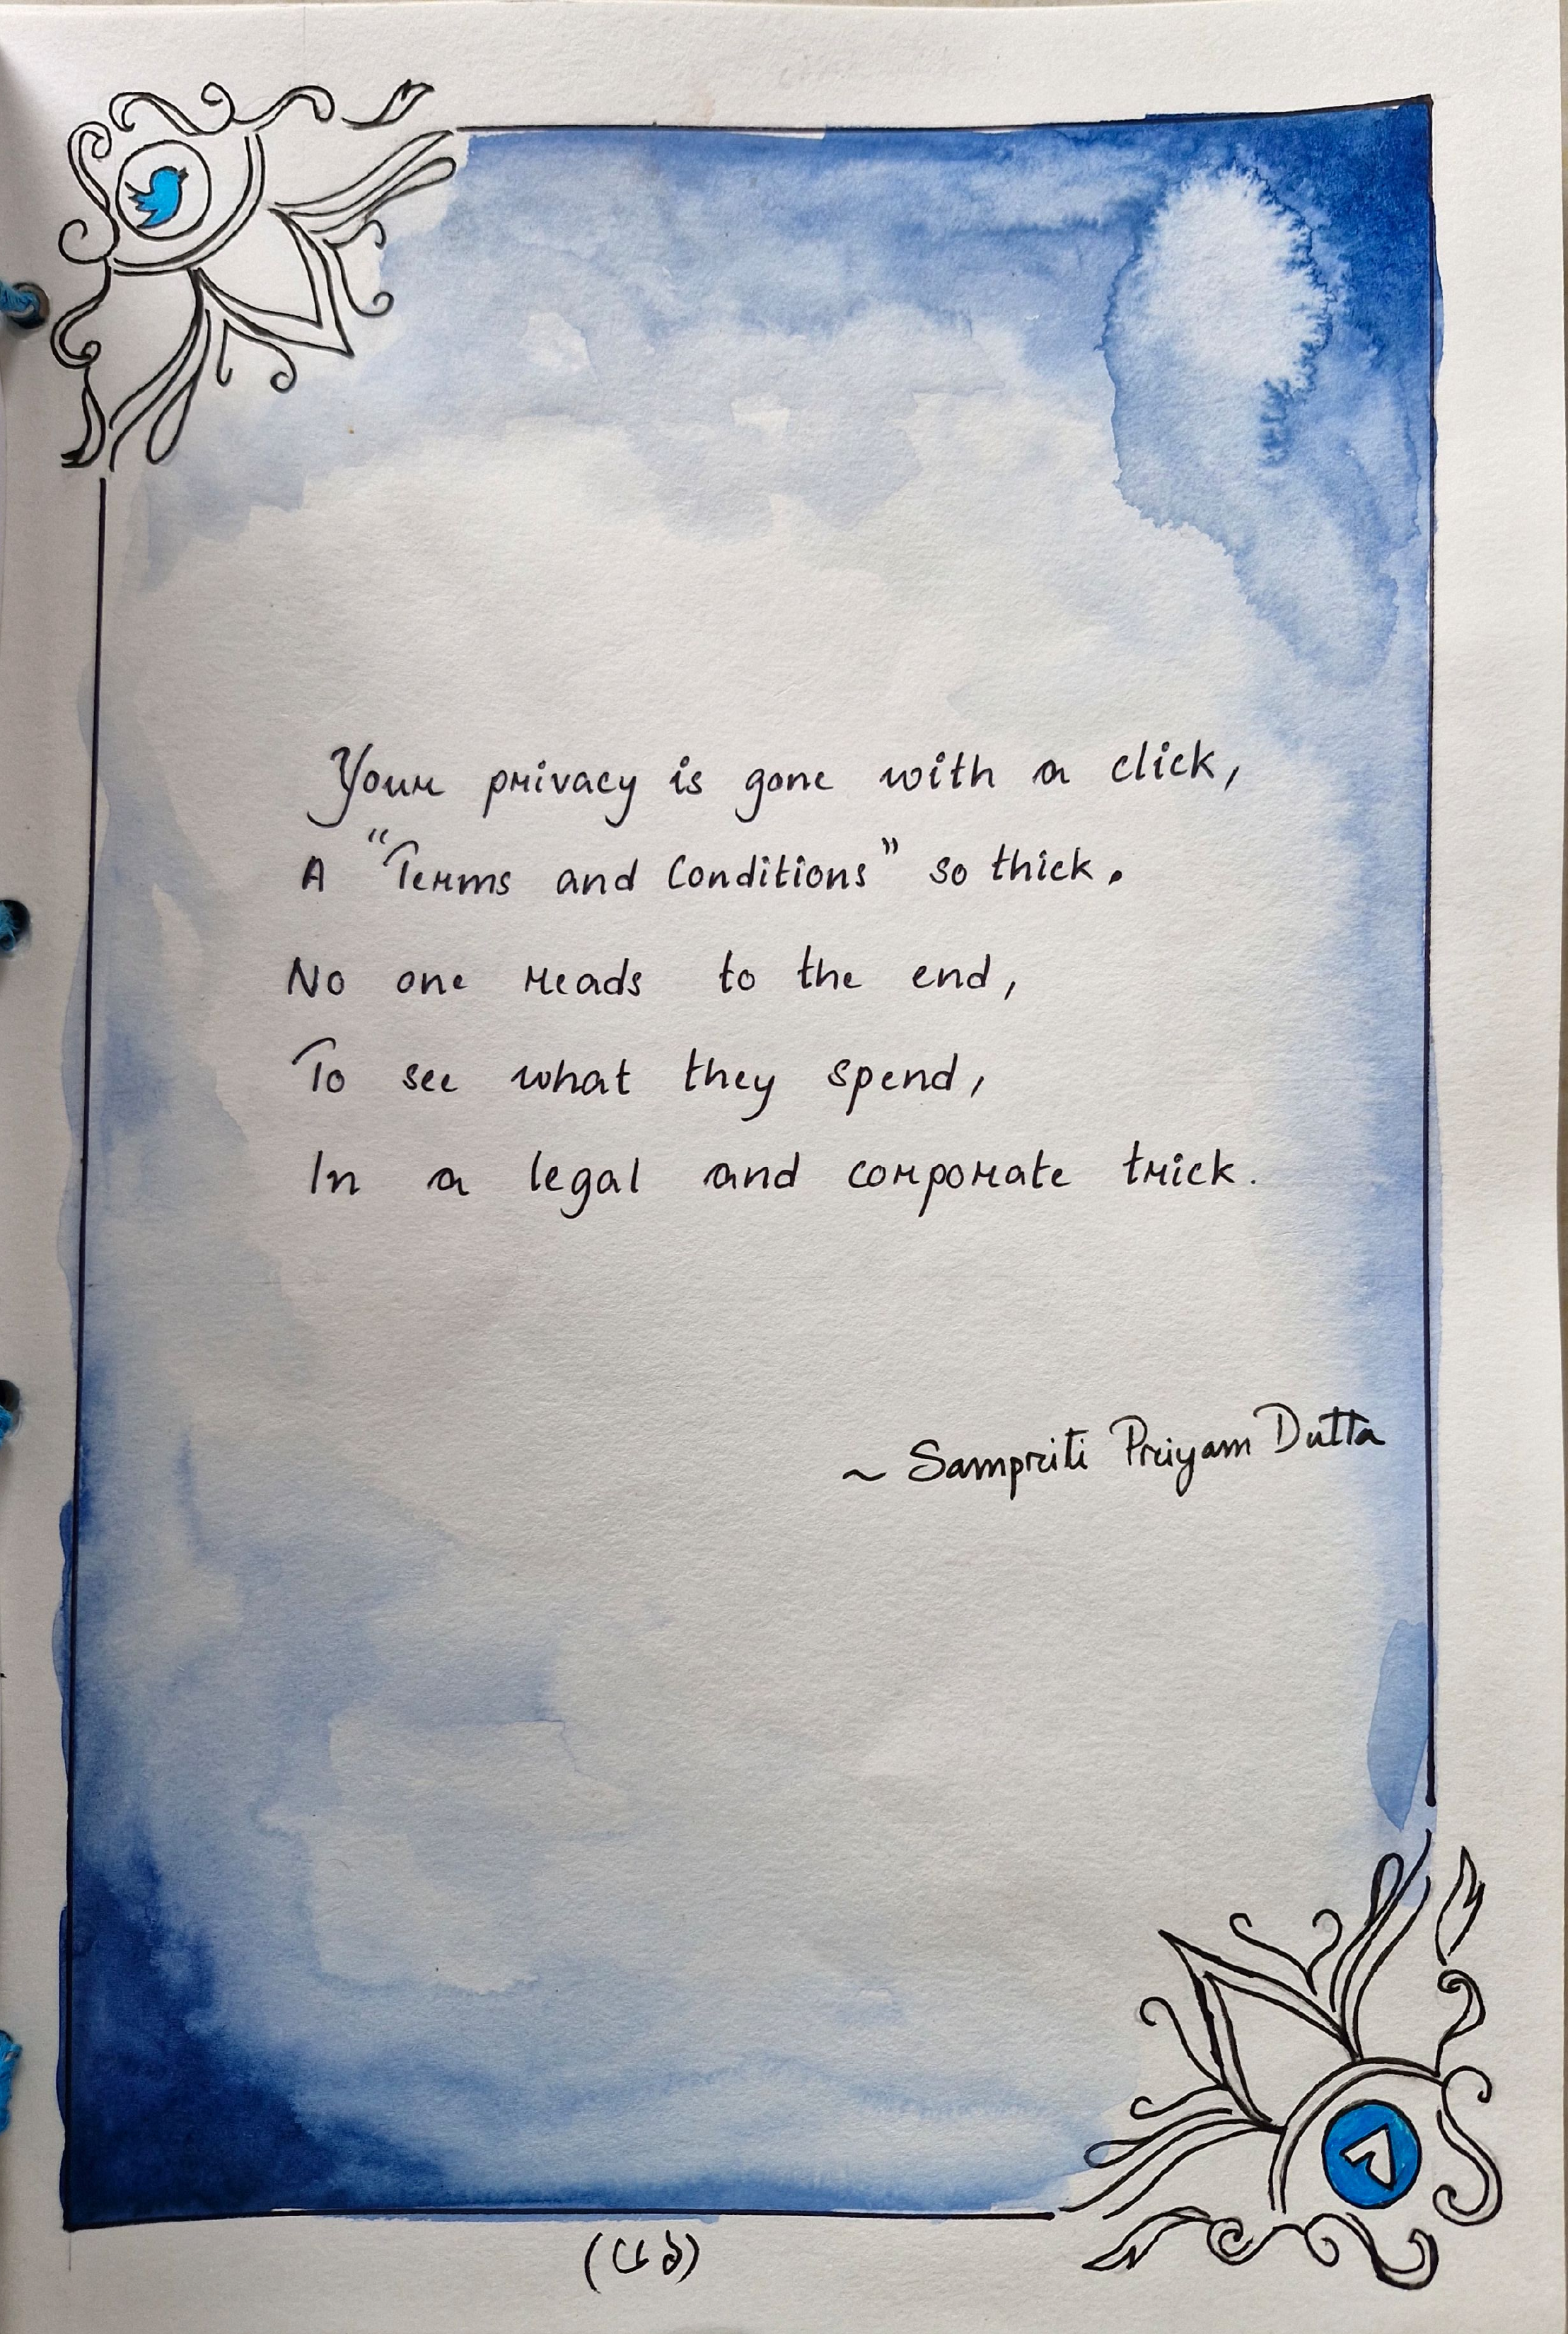 Your privacy is gone with a click,
A "Terms and Conditions" so thick.
No one reads to the end,
To see what they spend,
In a legal and corporate trick.
~ Sampriti Priyam Dutta